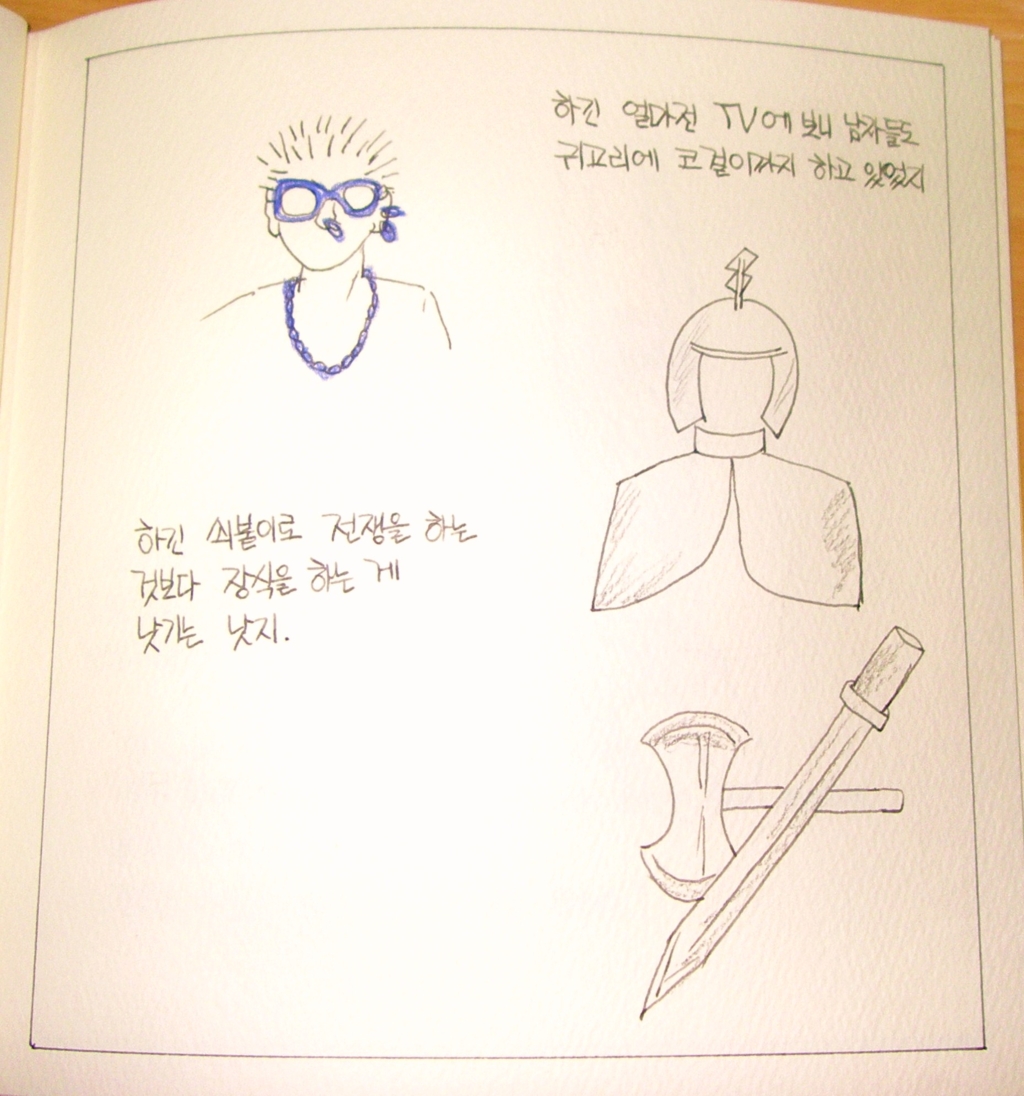 하긴 얼마전 TV에 보니 남자들도
귀고리에 코걸이까지 하고 있었지
하긴 쇠붙이로 전쟁을 하는
것보다 장식을 하는 게
낫기는 낫지.